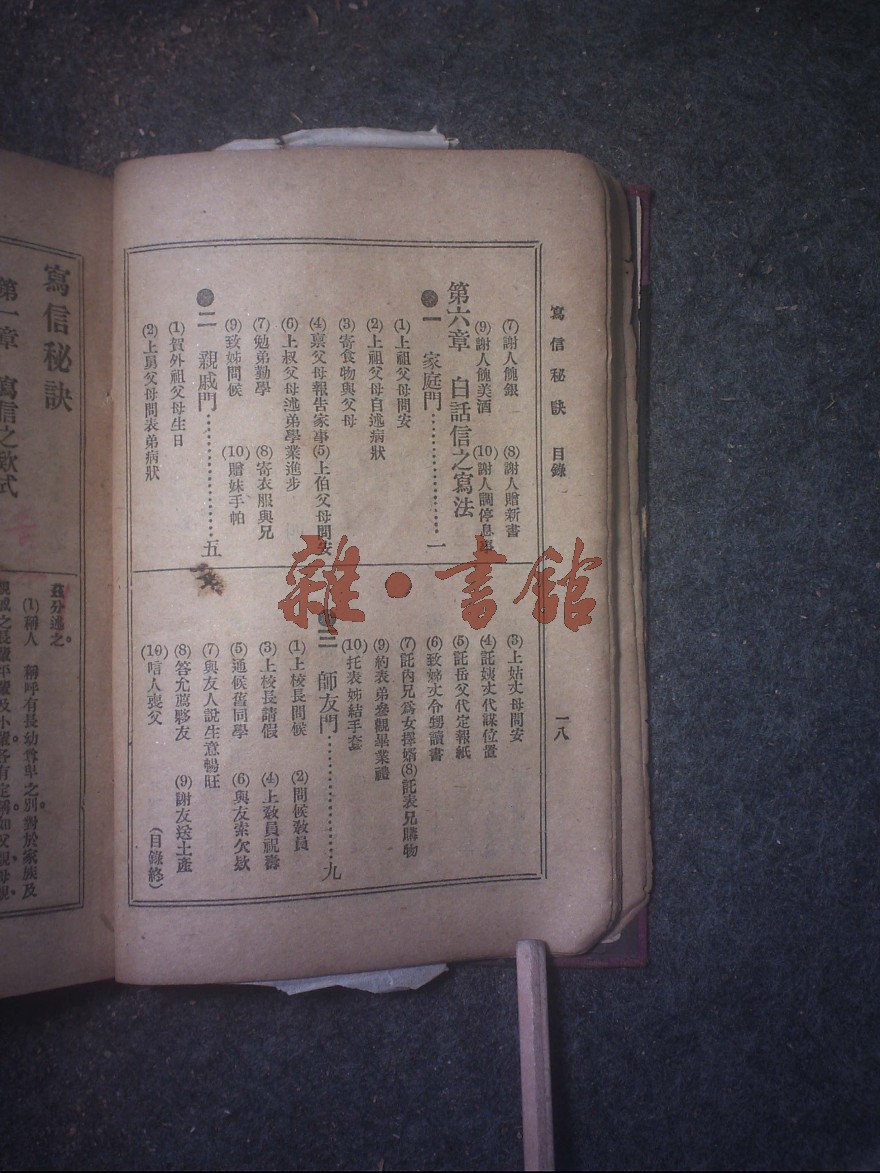 寫信秘訣 目錄
一八
(7)謝人餽銀 (8)謝人贈新書
(9)謝人餽美酒 (10)謝人調停息
第六章 白話信之寫法
一 家庭門 一
(1)上祖父母問安
(2)上祖父母自述病狀
(3)寄食物與父母
(4)禀父母報告家事(5)上伯父母問安
(6)上叔父母述弟學業進步
(7)勉弟勤學 (8)寄衣服與兄
(9)致姊問候 (10)贈妹手帕
二 親戚門 五
(1)賀外祖父母生日
(2)上舅父母問表弟病狀
(3)上姑丈母問安
(4)託姨丈代謀位置
(5)託岳父代定報紙
(6)致姊丈令甥讀書
(7)託內兄爲女擇婿(8)託表兄購物
(9)約表弟參觀畢業禮
(10)托表姊結手套
三 師友門 九
(1)上校長問候 (2)問候敎員
(3)上校長請假 (4)上敎員祝壽
(5)通候舊同學 (6)與友索欠款
(7)與友人說生意暢旺
(8)答允薦夥友 (9)謝友送土產
(10)唁人喪父 (目錄終)
寫信秘訣
第一章 寫信之欵式
分述之。
(1)稱人 稱呼有長幼尊卑之別。對於家族及
雜·書館